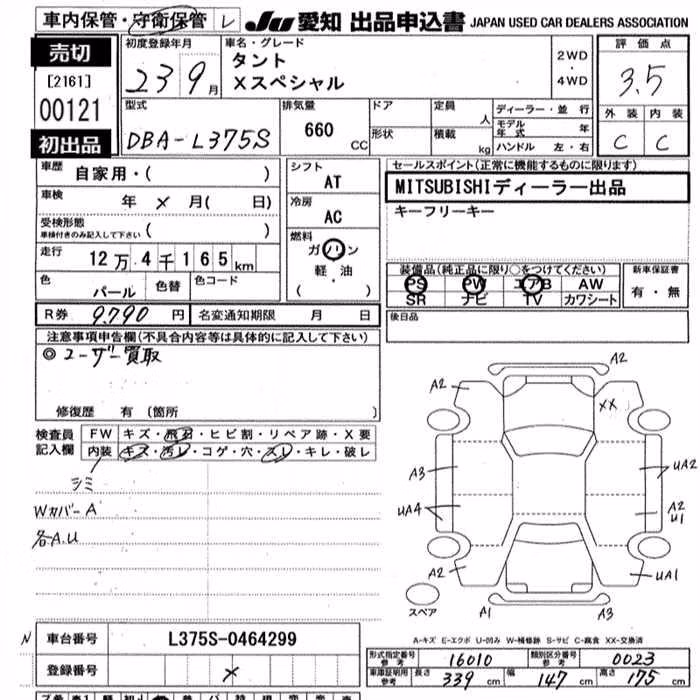 車内保管・守衛保管 レ JU 愛知 出品申込書 JAPAN USED CAR DEALERS ASSOCIATION
売切
[2161]
00121
初出品
初度登録年月
23 9月
車名・グレード
タント
Xスペシャル
2WD
・
4WD
評価点
3.5
外装 内装
C C
型式
DBA-L375S
排気量
660 CC
ドア
形状
定員 人
積載 kg
ディーラー・並行
モデル年式 年
ハンドル 左・右
車歴
自家用・( )
車検
年 × 月( 日)
受検形態
車検付きのみ記入して下さい ( )
走行
12万4千165km
色
パール
色替
色コード
シフト
AT
冷房
AC
燃料
ガソリン
軽・油
( )
セールスポイント(正常に機能するものに限ります)
MITSUBISHIディーラー出品
キーフリーキー
装備品(純正品に限り○をつけてください)
PS PW エアB AW
SR ナビ TV カワシート
新車保証書
有・無
後日品
R券 9,790 円 名変通知期限 月 日
注意事項申告欄(不具合内容等は具体的に記入して下さい)
◎ユーザー買取
修復歴 有 (箇所 )
検査員
記入欄
FW キズ・飛石・ヒビ割・リペア跡・X要
内装 キズ・汚レ・コゲ・穴・スレ・キレ・破レ
シミ
Wカバー A
各A.U
A2
A2
XX
A3
UA2
UA4
A2
U1
A2
UA1
スペア
A1
A3
A-キズ E-エクボ U-凹み W-補修跡 S-サビ C-腐食 XX-交換済
N 車台番号 L375S-0464299
登録番号 ×
形式指定番号
参考
16010
類別区分番号
参考
0023
車庫証明用
参考
長さ 339 cm 幅 147 cm 高さ 175 cm